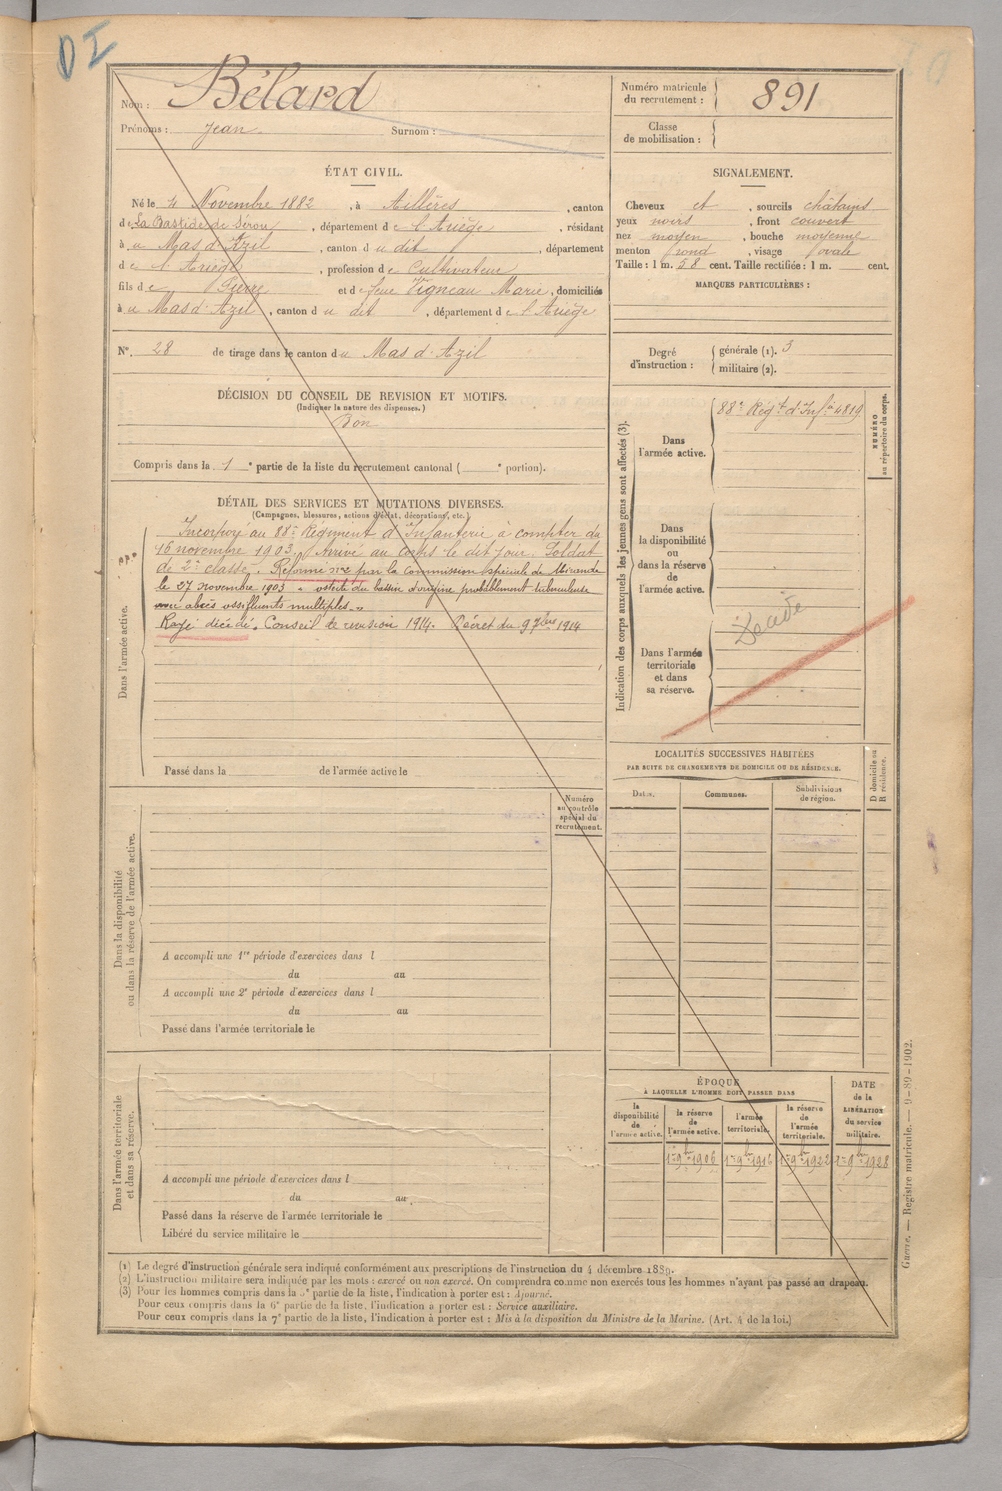 DI
Nom : Bélard
Prénoms : Jean Surnom :
Numéro matricule du recrutement : 891
Classe de mobilisation :
ÉTAT CIVIL.
Né le 4 Novembre 1882, à Aillères, canton
de La Bastide de Sérou, département de l'Ariège, résidant
à u Mas d'Azil, canton d u dit, département
de l'Ariège, profession de Cultivateur
fils de Pierre et de feue Vigneau Marie, domiciliés
à u Mas d'Azil, canton d u dit, département de l'Ariège
N° 28 de tirage dans le canton du Mas d'Azil
SIGNALEMENT.
Cheveux et, sourcils châtains
yeux noirs, front couvert
nez moyen, bouche moyenne
menton rond, visage ovale
Taille : 1 m. 58 cent. Taille rectifiée : 1 m. cent.
MARQUES PARTICULIÈRES :
Degré d'instruction :
générale (1). 3
militaire (2).
DÉCISION DU CONSEIL DE REVISION ET MOTIFS.
(Indiquer la nature des dispenses.)
Bon
Compris dans la 1e partie de la liste du recrutement cantonal ( e portion).
DÉTAIL DES SERVICES ET MUTATIONS DIVERSES.
(Campagnes, blessures, actions d'éclat, décorations, etc.)
Dans l'armée active.
Incorporé au 88e Régiment d'Infanterie à compter du
16 novembre 1903. Arrivé au corps le dit jour. Soldat
de 2e classe. Réformé n°2 par la Commission spéciale de Mirande
le 27 novembre 1903 ostéite du bassin d'origine probablement tuberculeuse
avec abcès ossifluents multiples.
Rayé décédé. Conseil de revision 1914. Décret du 9 7bre 1914
Passé dans la de l'armée active le
Indication des corps auxquels les jeunes gens sont affectés (3).
Dans l'armée active.
88e Régt d'Infie 4819
NUMÉRO au répertoire du corps.
Dans la disponibilité ou dans la réserve de l'armée active.
Dans l'armée territoriale et dans sa réserve.
Décédé
LOCALITÉS SUCCESSIVES HABITÉES
PAR SUITE DE CHANGEMENTS DE DOMICILE OU DE RÉSIDENCE.
Dates. Communes. Subdivisions de région.
D domicile ou R résidence.
Dans la disponibilité ou dans la réserve de l'armée active.
Numéro au contrôle spécial du recrutement.
A accompli une 1re période d'exercices dans l
du au
A accompli une 2e période d'exercices dans l
du au
Passé dans l'armée territoriale le
Dans l'armée territoriale et dans sa réserve.
A accompli une période d'exercices dans l
du au
Passé dans la réserve de l'armée territoriale le
Libéré du service militaire le
ÉPOQUE
À LAQUELLE L'HOMME DOIT PASSER DANS
la disponibilité de l'armée active.
la réserve de l'armée active.
l'armée territoriale.
la réserve de l'armée territoriale.
DATE de la LIBÉRATION du service militaire.
1er 9bre 1906 1er 9bre 1916 1er 9bre 1922 1er 9bre 1928
(1) Le degré d'instruction générale sera indiqué conformément aux prescriptions de l'instruction du 4 décembre 1889.
(2) L'instruction militaire sera indiquée par les mots : exercé ou non exercé. On comprendra comme non exercés tous les hommes n'ayant pas passé au drapeau.
(3) Pour les hommes compris dans la 5e partie de la liste, l'indication à porter est : Ajourné.
Pour ceux compris dans la 6e partie de la liste, l'indication à porter est : Service auxiliaire.
Pour ceux compris dans la 7e partie de la liste, l'indication à porter est : Mis à la disposition du Ministre de la Marine. (Art. 4 de la loi.)
Guerre. — Registre matricule. — 9-89-1902.